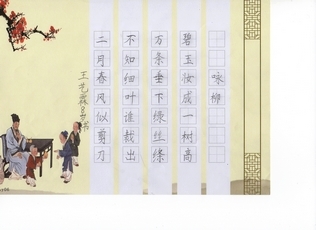 咏柳
碧玉妆成一树高
万条垂下绿丝绦
不知细叶谁裁出
二月春风似剪刀
王艺霖8岁书